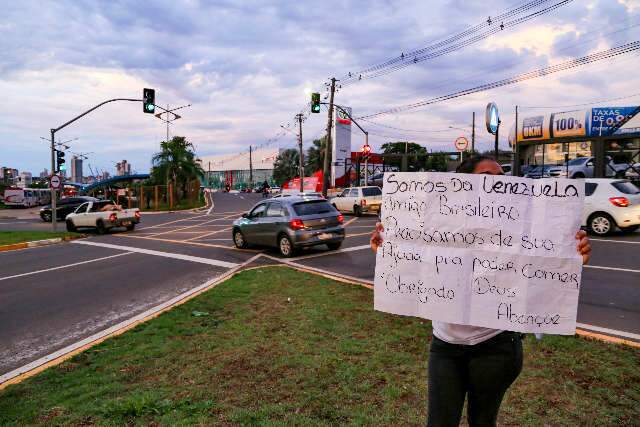 TAXAS
DE 0,89%
0KM
100%
Somos Da Venezuela
Amigo Brasileiro
Precisamos de sua
Ajuda pra poder comer
Obrigado Deus
Abençue